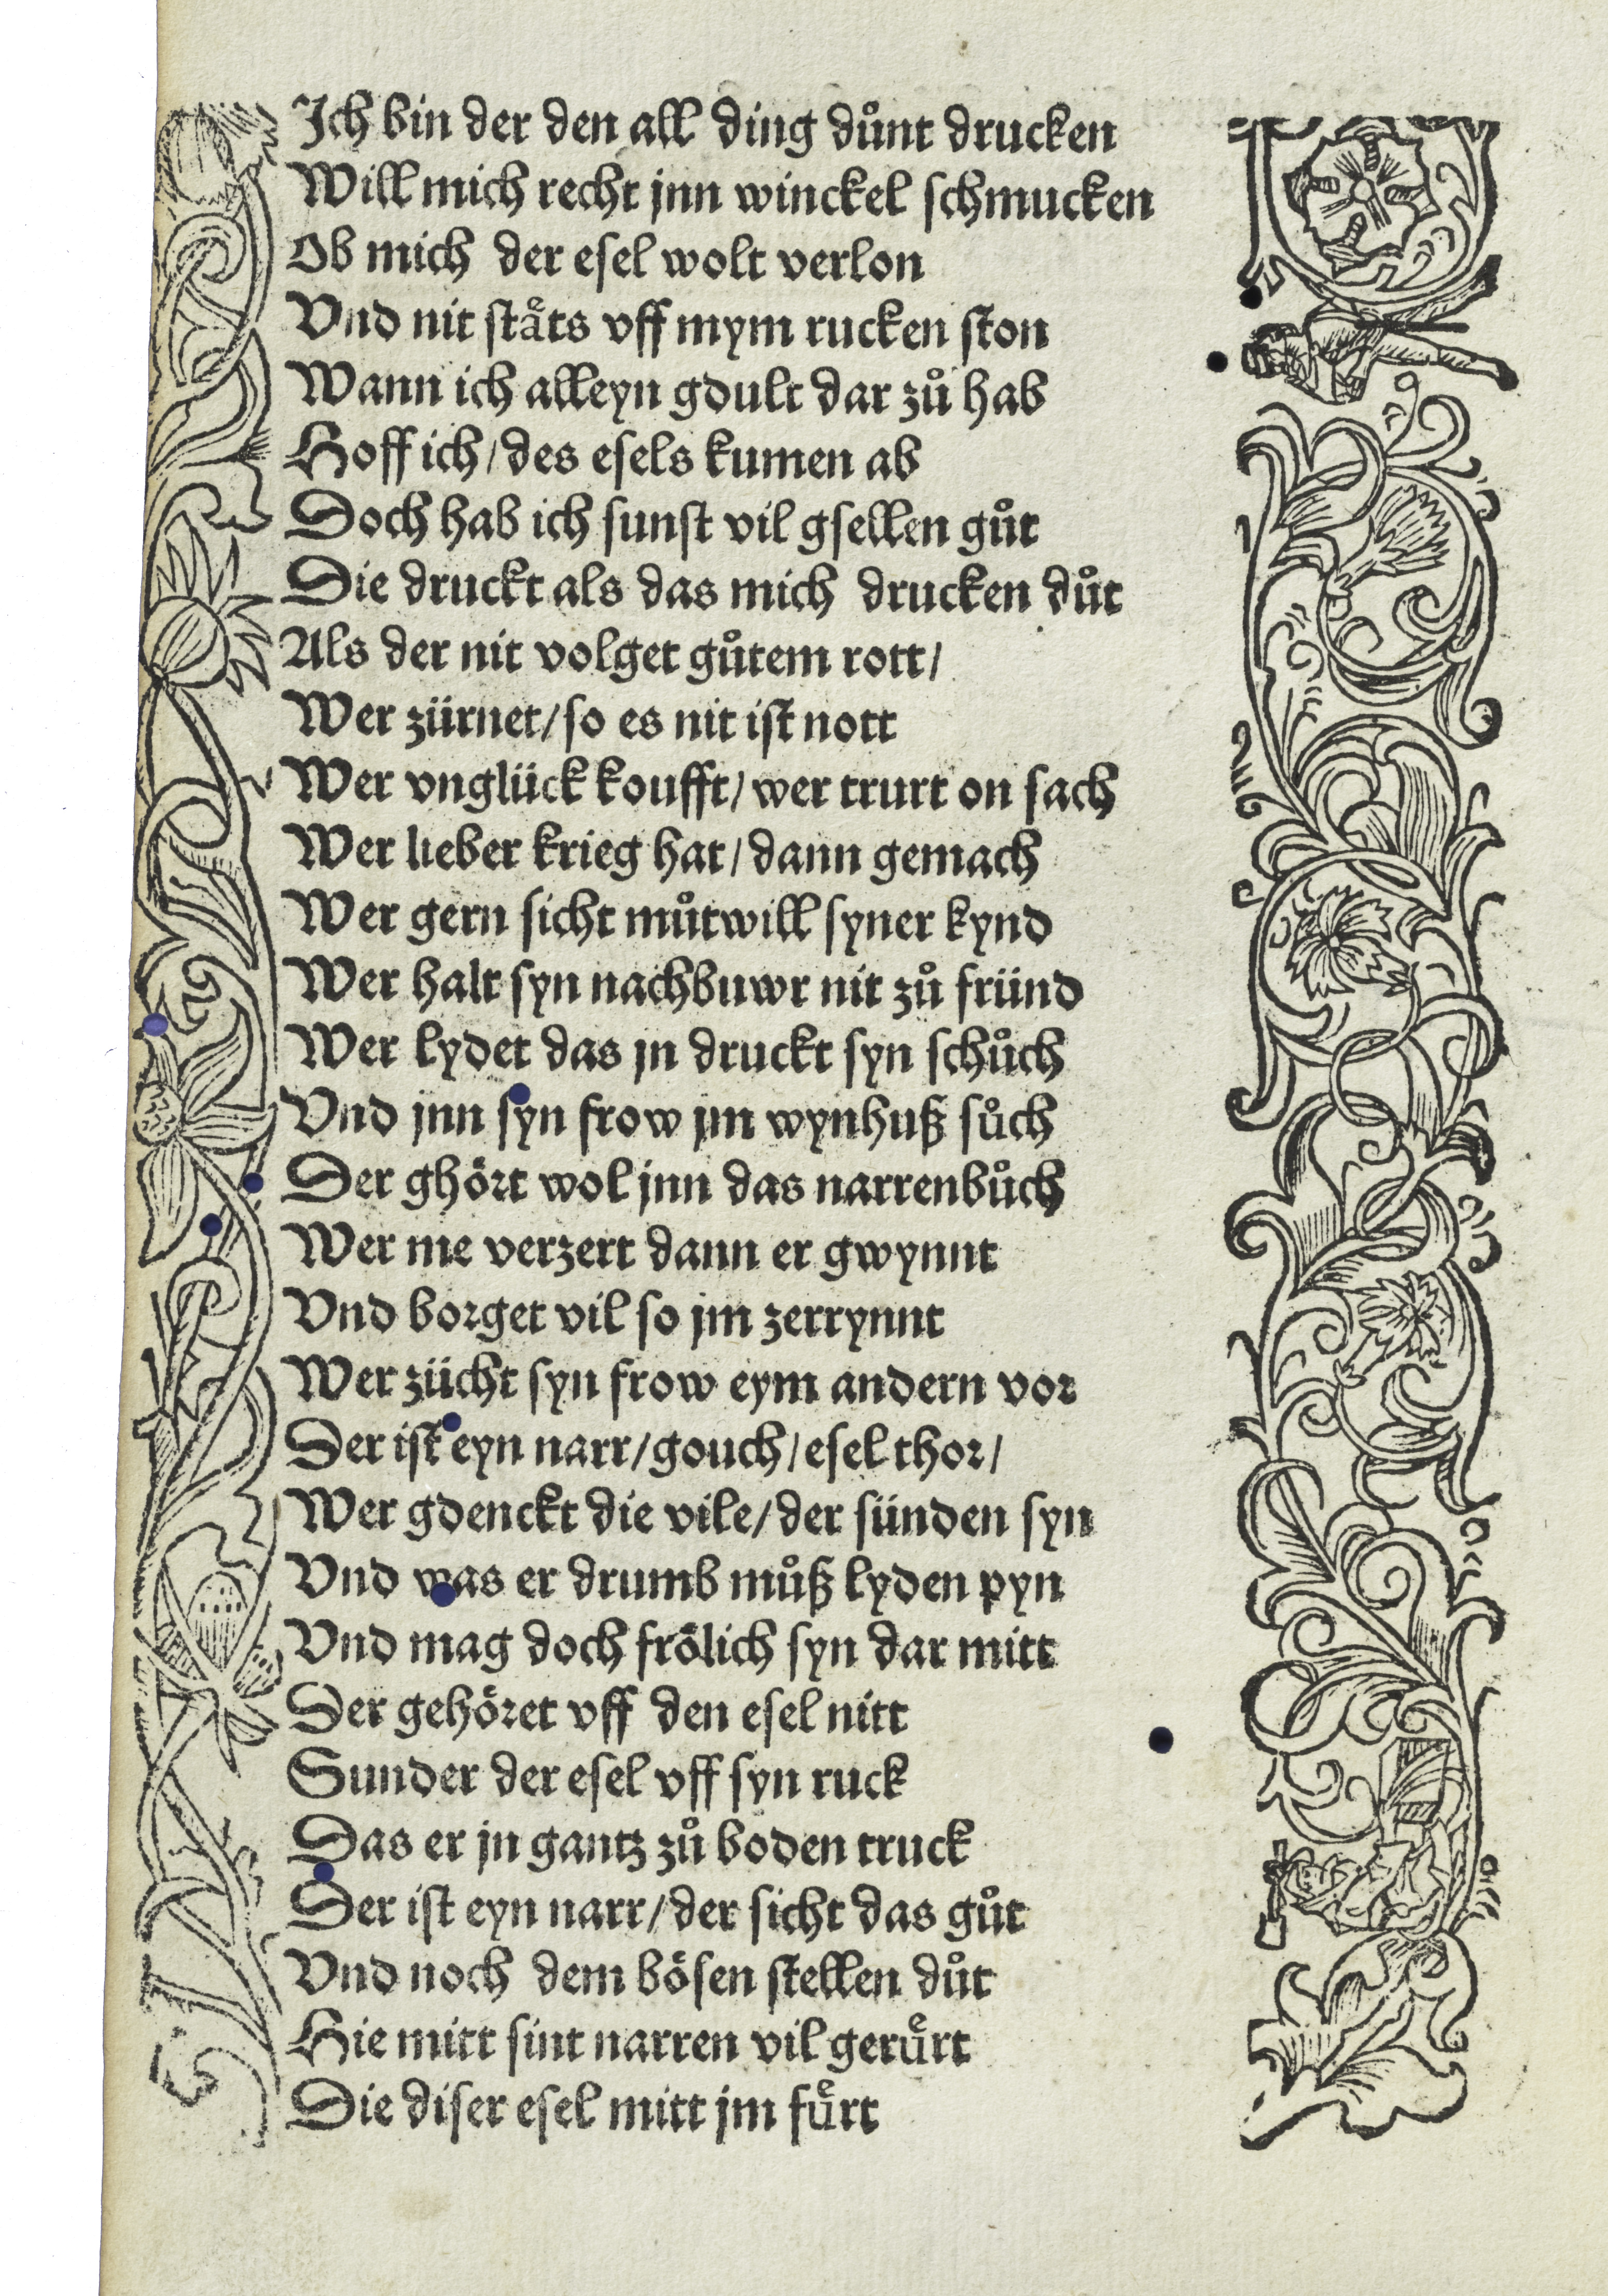 Ich bin der den all ding důnt drucken
Will mich recht jnn winckel schmucken
Ob mich der esel wolt verlon
Vnd nit ståͤts vff mym rucken ston
Wann ich alleyn gdult dar zů hab
Hoff ich / des esels kumen ab
Doch hab ich sunst vil gsellen gůt
Die druckt als das mich drucken důt
Als der nit volget gůtem rott /
Wer zürnet / so es nit ist nott
Wer vnglück koufft / wer trurt on sach
Wer lieber krieg hat / dann gemach
Wer gern sicht můtwill syner kynd
Wer halt syn nachbuwr nit zů fründ
Wer lydet das jn druckt syn schůch
Vnd jnn syn frow jm wynhuß sůch
Der ghört wol jnn das narrenbůch
Wer me verzert dann er gwynnt
Vnd borget vil so jm zerrynnt
Wer zücht syn frow eym andern vor
Der ist eyn narr / gouch / esel thor /
Wer gdenckt die vile / der sünden syn
Vnd was er drumb můß lyden pyn
Vnd mag doch frölich syn dar mitt
Der gehöret vff den esel nitt
Sunder der esel vff syn ruck
Das er jn gantz zů boden truck
Der ist eyn narr / der sicht das gůt
Vnd noch dem bösen stellen důt
Hie mitt sint narren vil geruͤrt
Die diser esel mitt jm fuͤrt